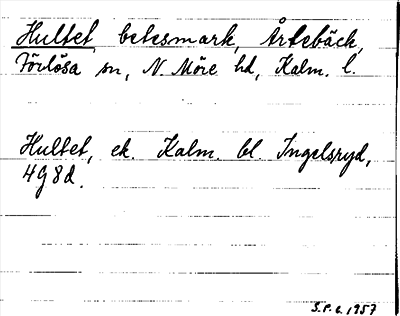 Hultet, betesmark, Årtebäck,
Förlösa sn, N. Möre hd, Kalm. l.
Hultet, ek. Kalm. bl. Ingelsryd,
4g8d.
S.P.c. 1957